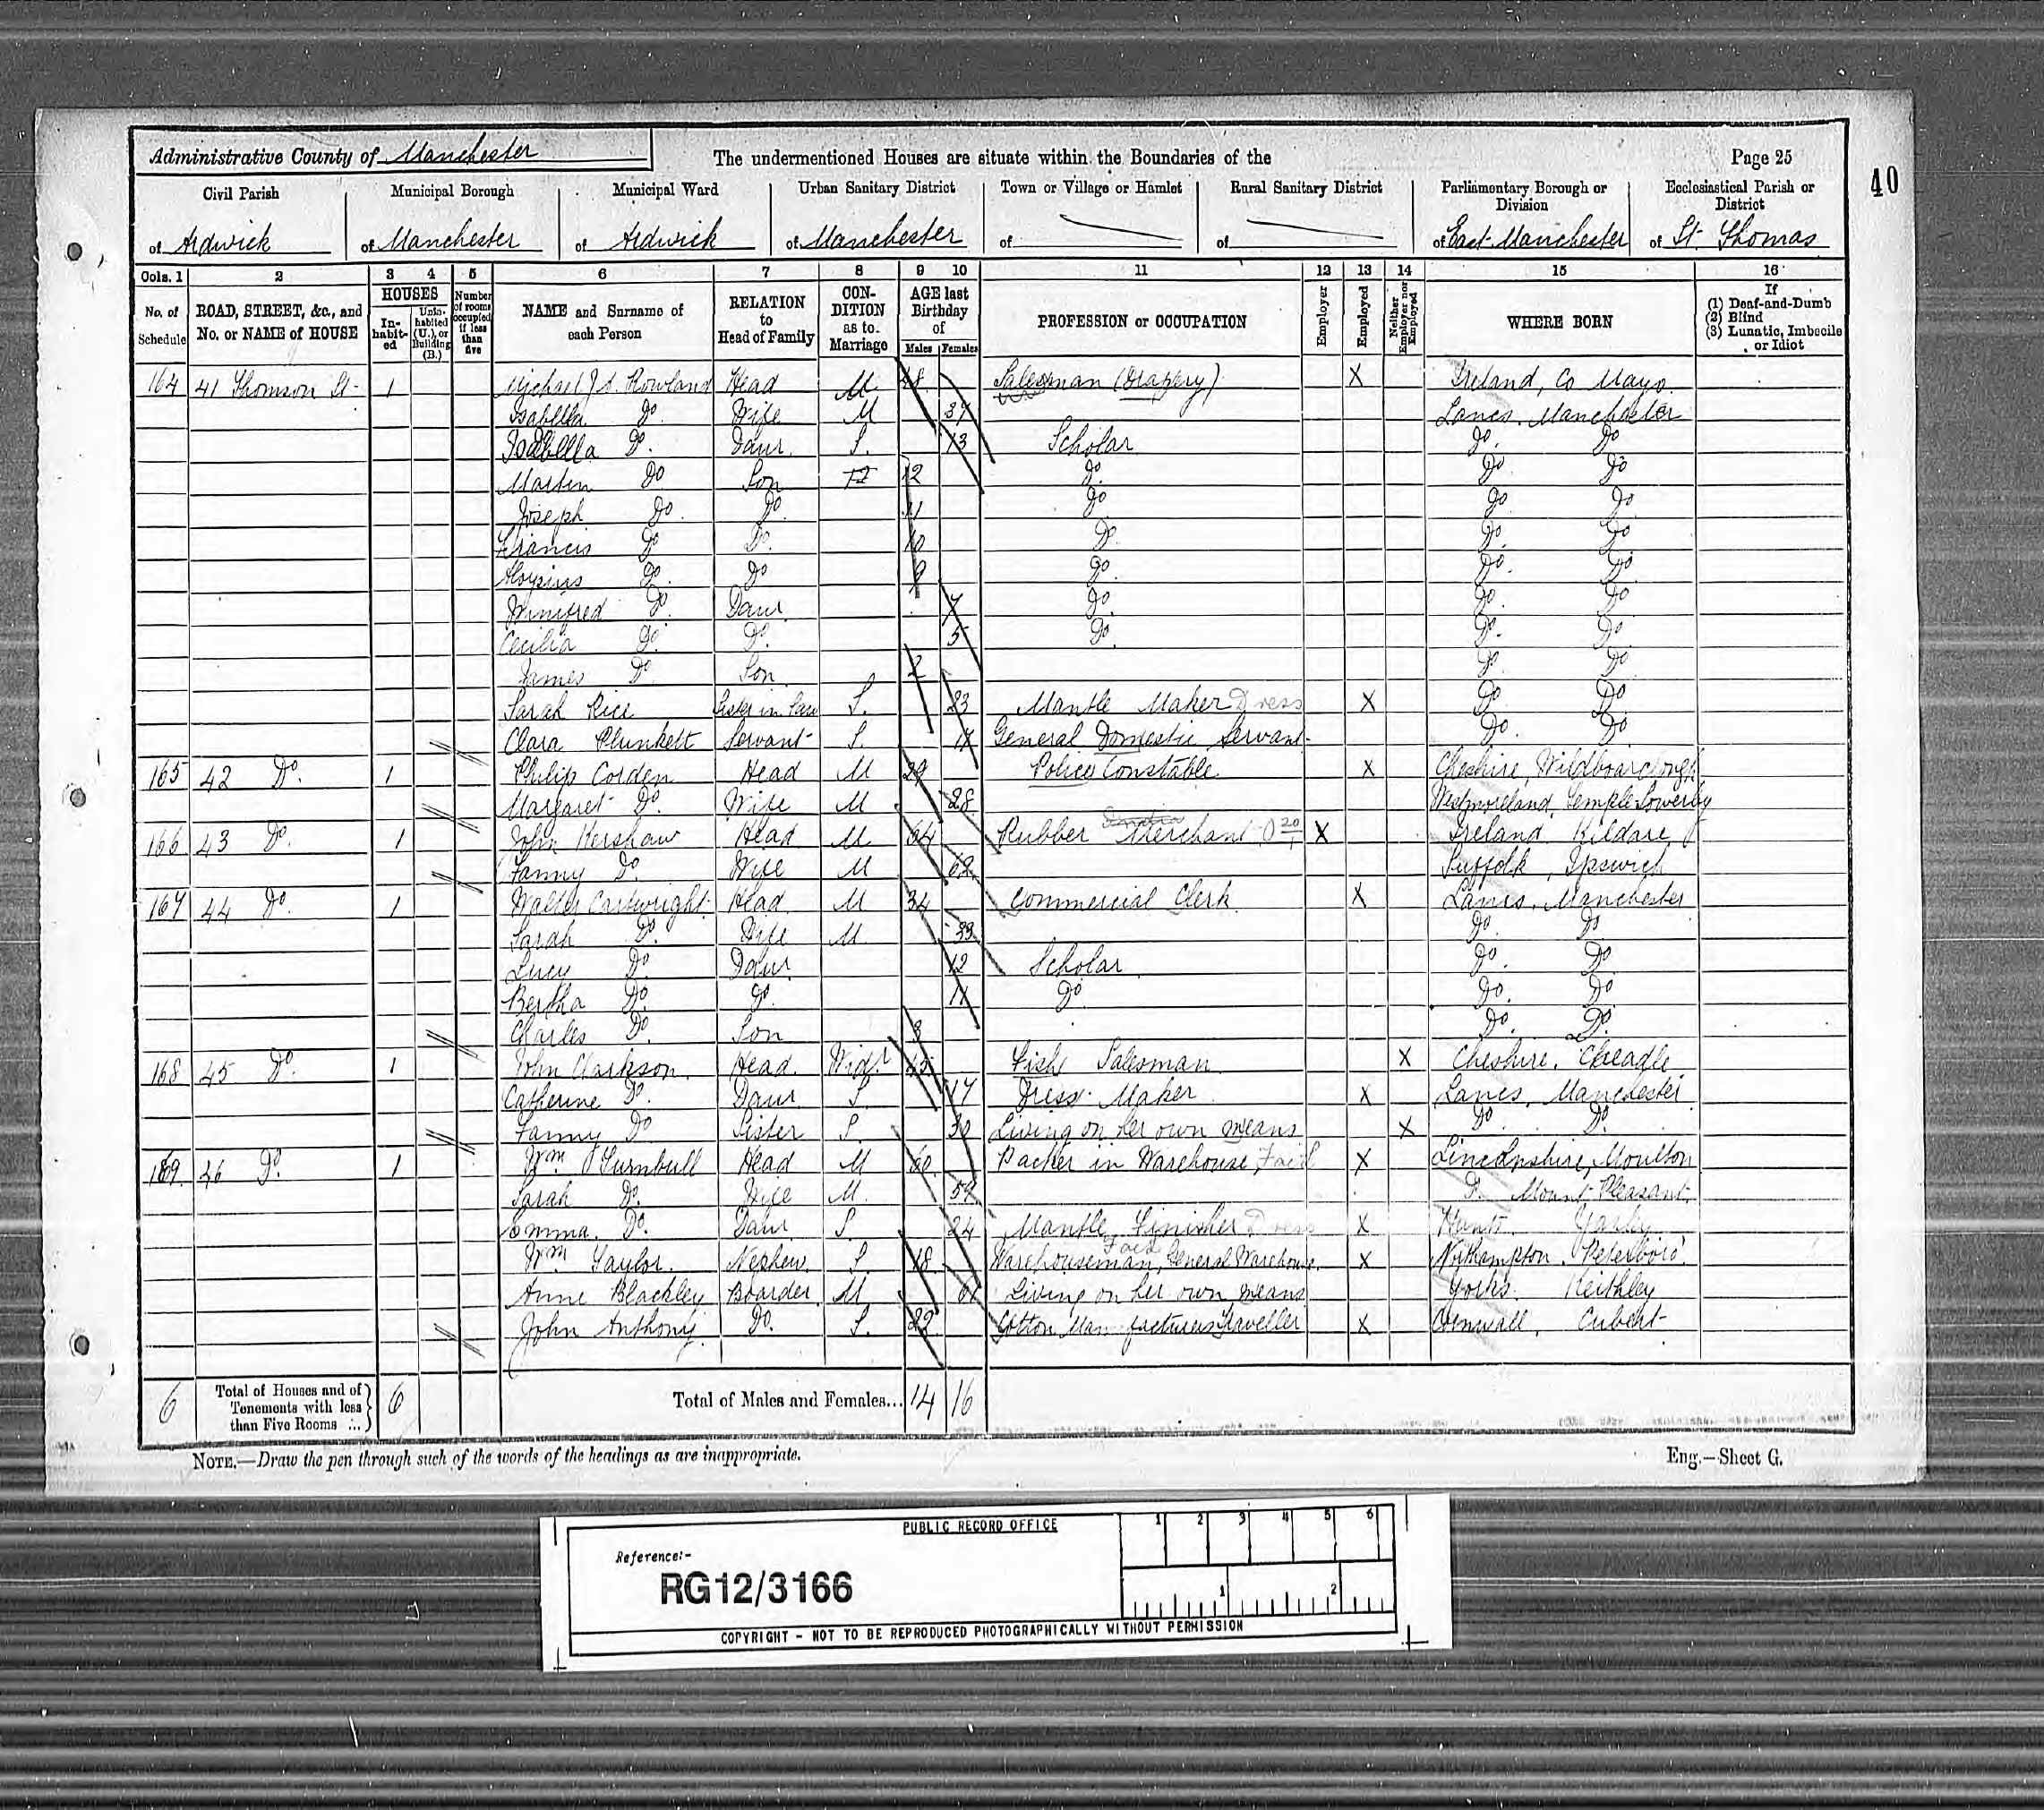 Administrative County of Manchester The undermentioned Houses are situate within the Boundaries of the Page 25
40
Civil Parish Municipal Borough Municipal Ward Urban Sanitary District Town or Village or Hamlet Rural Sanitary District Parliamentary Borough or Division Ecclesiastical Parish or District
of Ardwick of Manchester of Ardwick of Manchester of of of East Manchester of St. Thomas
Cols. 1 2 3 4 5 6 7 8 9 10 11 12 13 14 15 16
No. of Schedule ROAD, STREET, &c., and No. or NAME of HOUSE HOUSES Inhabited Uninhabited (U.), or Building (B.) Number of rooms occupied if less than five NAME and Surname of each Person RELATION to Head of Family CONDITION as to Marriage AGE last Birthday of Males Females PROFESSION or OCCUPATION Employer Employed Neither Employer nor Employed WHERE BORN If (1) Deaf-and-Dumb (2) Blind (3) Lunatic, Imbecile or Idiot
164 41 Thomson St 1 Michael J. A. Rowland Head M Salesman (Drapery) X Ireland, Co Mayo
Isabella Do Wife M 37 Lancs. Manchester
Isabella Do. Daur. S. 13 Scholar Do. Do
Martin Do Son 12 12 Do. Do Do
Joseph Do. Do. 11 Do Do Do
Francis Do Do. 10 Do. Do. Do
Aloysius Do. Do 9 Do. Do. Do
Winifred Do. Daur. 7 Do. Do. Do
Cecilia Do. Do. 5 Do. Do. Do
James Do Son 2 Do. Do
Sarah Rice Sister in Law S. 23 Mantle Maker Dress X Do Do
Clara Plunkett Servant S. 17 General Domestic Servant Do. Do
165 42 Do. 1 Philip Corden Head M 29 Police Constable X Cheshire, Wildboarclough
Margaret Do. Wife M 28 Westmoreland, Temple Sowerby
166 43 Do. 1 John Kershaw Head M 64 Rubber Merchant X Ireland, Kildare
Fanny Do. Wife M 62 Suffolk, Ipswich
167 44 Do. 1 Walter Cartwright Head M 34 Commercial Clerk X Lancs. Manchester
Sarah Do. Wife M 33 Do. Do
Lucy Do. Daur. 12 Scholar Do. Do
Bertha Do. Do. 11 Do Do. Do
Charles Do Son 3 Do. Do.
168 45 Do. 1 John Clarkson Head Widr 45 Fish Salesman X Cheshire. Cheadle
Catherine Do. Daur. S. 17 Dress Maker X Lancs. Manchester
Fanny Do Sister S. 30 Living on her own means X Do. Do.
169 46 Do. 1 Wm Turnbull Head M 60 Packer in Warehouse, X Lincolnshire, Moulton
Sarah Do. Wife M. Do. Mount Pleasant
Emma Do. Daur. S. 24 Mantle Finisher Dress X Hunts. Yaxley
Wm Taylor Nephew S. 18 Warehouseman, General Warehouse X Northampton. Peterboro'
Anne Blackley Boarder M 61 Living on her own means Yorks. Keithley
John Anthony Do. S. 22 Cotton Manufacturers Traveller X Cornwall, Cubert
6 Total of Houses and of Tenements with less than Five Rooms 6 Total of Males and Females... 14 16
NOTE.—Draw the pen through such of the words of the headings as are inappropriate. Eng.—Sheet G.
PUBLIC RECORD OFFICE
1 2 3 4 5 6
Reference:-
RG12/3166
1 2
COPYRIGHT - NOT TO BE REPRODUCED PHOTOGRAPHICALLY WITHOUT PERMISSION